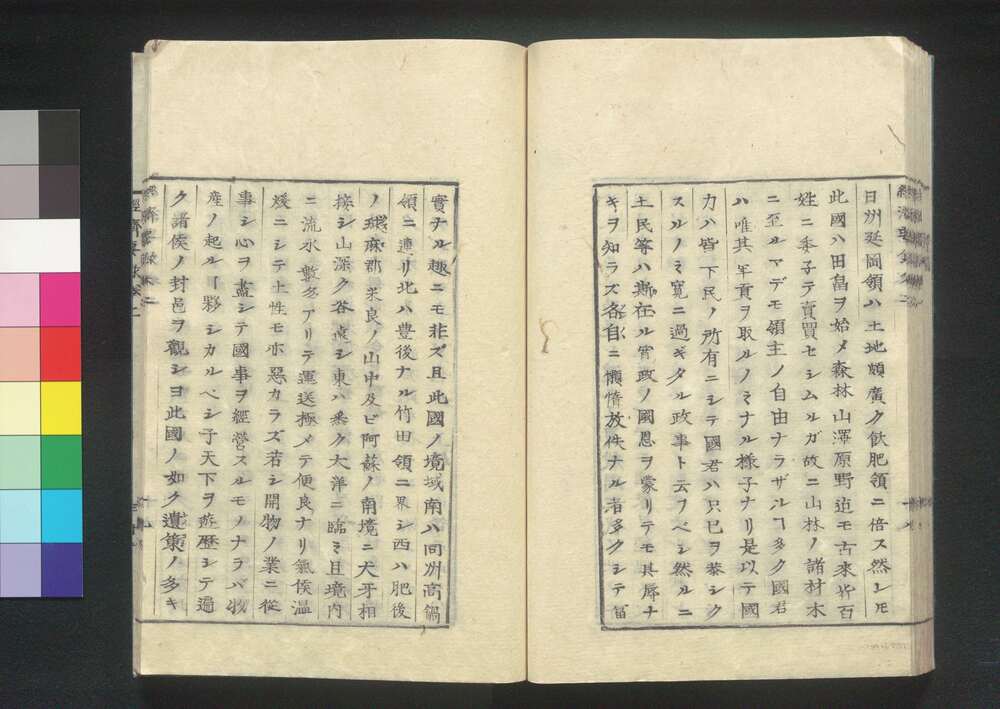 日州延岡領ハ土地頗廣ク飫肥領ニ倍ス然レㇳモ
此國ハ田畠ヲ始メ森林山澤原野迠モ古來皆百
姓ニ委子テ賣買セシムルガ故ニ山林ノ諸材木
ニ至ルマデモ領主ノ自由ナラザルヿ多ク國君
ハ唯其年貢ヲ取ルノミナル様子ナリ是以テ國
力ハ皆下民ノ所有ニシテ國君ハ只已ヲ恭シク
スルノミ寛ニ過ギタル政事ト云フベシ然ルニ
土民等ハ斯在ル寛政ノ國恩ヲ蒙リテモ其辱ナ
キヲ知ラズ各自ニ懶惰放佚ナル者多クシテ冨
實ナル趣ニモ非ズ且此國ノ境域南ハ同州高鍋
領ニ連リ北ハ豊後ナル竹田領ニ界シ西ハ肥後
ノ球麻郡米良ノ山中及ビ阿蘇ノ南境ニ犬牙相
接シ山深ク谷遠シ東ハ悉ク大洋ニ臨ミ且境内
ニ流水數多アリテ運送極メテ便良ナリ氣候温
煖ニシテ土性モ亦惡カラズ若シ開物ノ業ニ從
事シ心ヲ盡シテ國事ヲ經營スルモノナラバ物
産ノ起ルヿ夥シカルベシ子天下ヲ遊歴シテ遍
ク諸侯ノ封邑ヲ觀シヨ此國ノ如ク遺策ノ多キ
經濟要録卷二